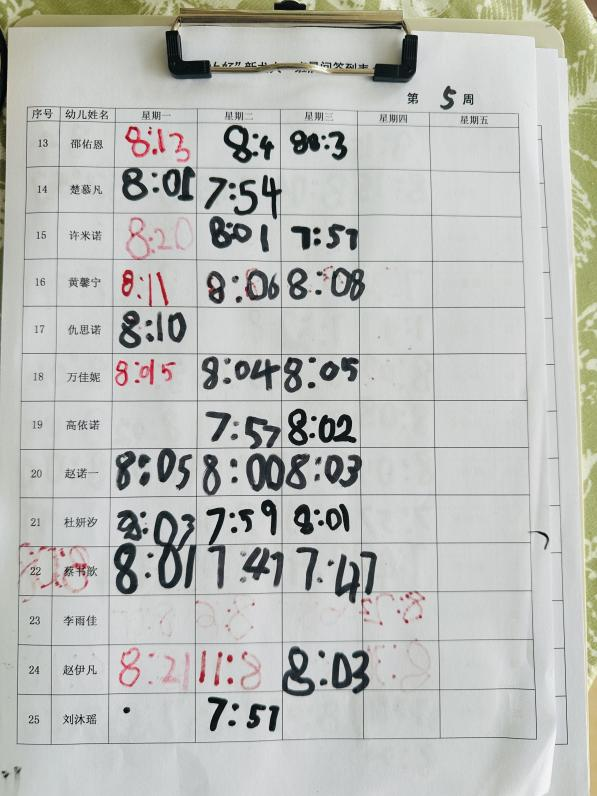 第 5 周
序号 幼儿姓名 星期一 星期二 星期三 星期四 星期五
13 邵佑恩 8:13 8:4 8:3
14 楚慕凡 8:01 7:54
15 许米诺 8:20 8:01 7:57
16 黄馨宁 8:11 8:06 8:08
17 仇思诺 8:10
18 万佳妮 8:015 8:04 8:05
19 高依诺 7:57 8:02
20 赵诺一 8:05 8:00 8:03
21 杜妍汐 8:03 7:59 8:01
22 蔡书歆 8:01 7:47 7:47
23 李雨佳
24 赵伊凡 8:21 11:8 8:03
25 刘沐瑶 7:57